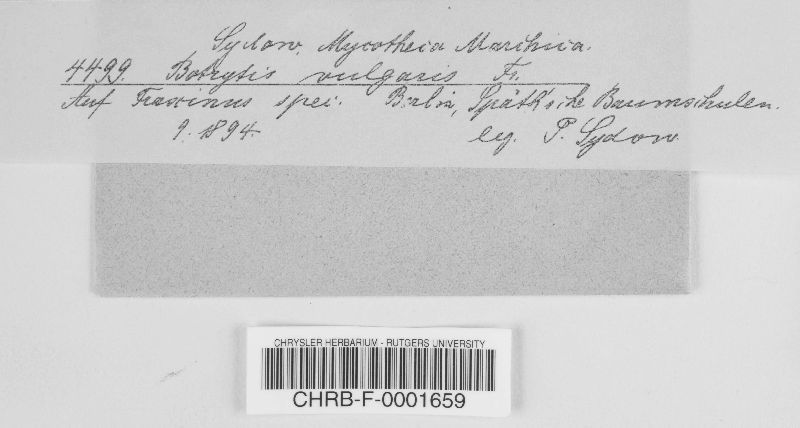 Sydow, Mycotheca Marchica.
4499. Botrytis vulgaris Fr.
Auf Fraxinus spec. Berlin, Späth'sche Baumschulen.
9. 1894. leg. P. Sydow.
CHRYSLER HERBARIUM - RUTGERS UNIVERSITY
CHRB-F-0001659